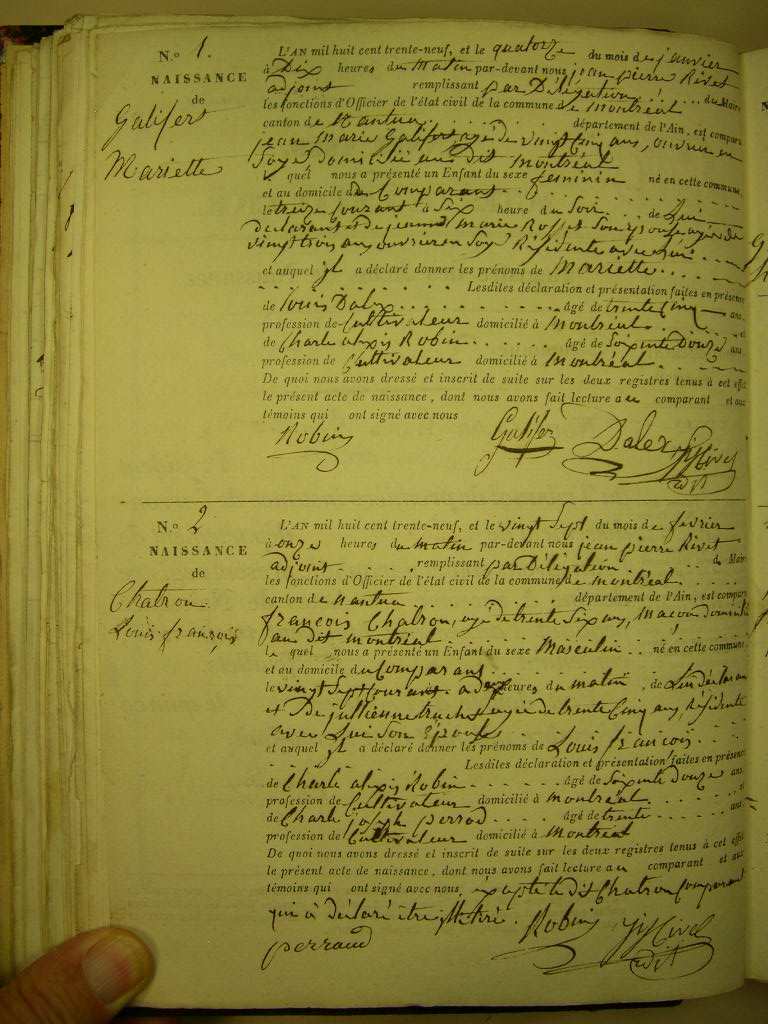 N.º 1.
NAISSANCE
de
Galifert
Mariette
L'AN mil huit cent trente-neuf, et le quatorze du mois de janvier
à Dix heures du Matin par-devant nous jean pierre Rivet
adjoint remplissant par Déligation du Maire
les fonctions d'Officier de l'état civil de la commune de Montréal
canton de Nantua département de l'Ain, est comparu
jean Marie Galifert agé de vingt Cinq ans, ouvrier en
Soye domicilié au dit Montréal
le quel nous a présenté un Enfant du sexe feminin né en cette commune,
et au domicile du Comparant
le treize Courant à Six heure du Soir de Lui
declarant et de jeanne Marie Rosset Son Epouse agée de
vingt trois ans ouvrière en Soye Résidente avec lui
et auquel il a déclaré donner les prénoms de Mariette
Lesdites déclaration et présentation faites en présence
de Louis Dalex âgé de trente Cinq ans
profession de Cultivateur domicilié à Montréal et
de Charle alixis Robin âgé de Soixente Douze ans
profession de Cultivateur domicilié à Montréal.
De quoi nous avons dressé et inscrit de suite sur les deux registres tenus à cet effet
le présent acte de naissance, dont nous avons fait lecture au comparant et aux
témoins qui ont signé avec nous
Robin Galifer Dalex Rivet
adjt
N.º 2
NAISSANCE
de
Chatron
Louis françois
L'AN mil huit cent trente-neuf, et le vingt Sept du mois de fevrier
à onze heures du matin par-devant nous jean pierre Rivet
adjoint remplissant par Déligation du Maire
les fonctions d'Officier de l'état civil de la commune de montréal
canton de nantua département de l'Ain, est comparu
françois Chatron, agé de trente Six ans, Maçon domicilié
au dit montréal
le quel nous a présenté un Enfant du sexe Masculin né en cette commune,
et au domicile du Comparant
le vingt Sept Courant à deux heures du matin, de Lui déclarant
et De jullienne truchet agée de trente Cinq ans, Résidente
avec Lui Son Epouse
et auquel il a déclaré donner les prénoms de Louis françois
Lesdites déclaration et présentation faites en présence
de Charle alixis Robin âgé de Soixente douze ans
profession de Cultivateur domicilié à montréal et
de Charle joseph perrod âgé de trente ans
profession de Cultivateur domicilié à Montréal
De quoi nous avons dressé et inscrit de suite sur les deux registres tenus à cet effet
le présent acte de naissance, dont nous avons fait lecture au comparant et aux
témoins qui ont signé avec nous excepte le dit Chatron Comparant
qui à déclaré être illetiré. Robin Rivet
perraud adjt